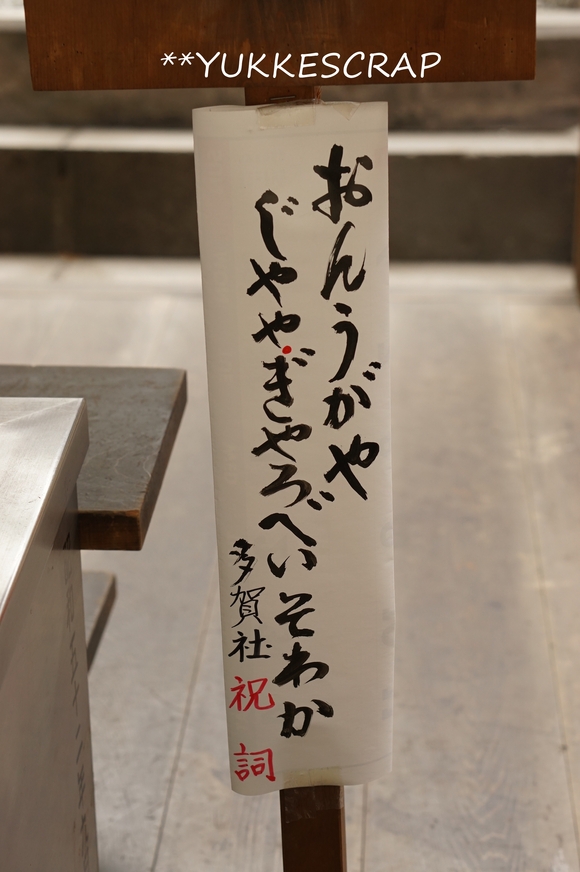 **YUKKESCRAP
おんうがや
じゃや・ぎやろべい そわか
多賀社 祝詞